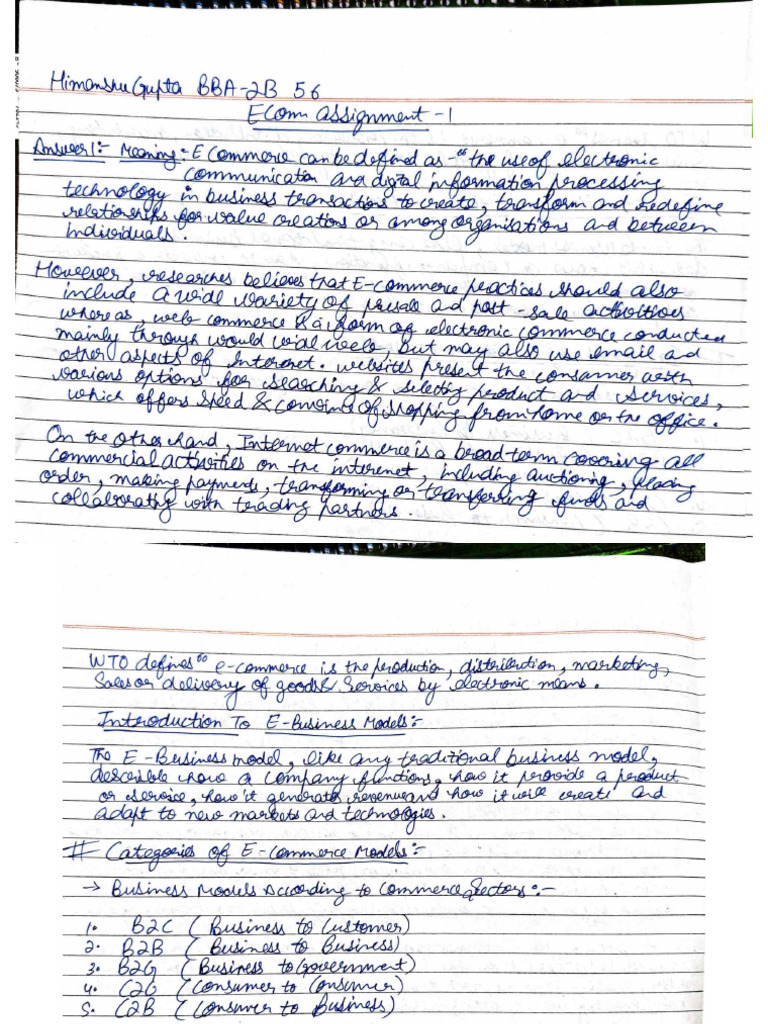 Himanshu Gupta BBA-2B 56
Ecom Assignment -1
Answer1:- Meaning:- E Commerce can be defined as -" the use of electronic
communication and digital information processing
technology in business transactions to create, transform and redefine
relationships for value creations or among organisations and between
individuals.
However, researches believes that E-commerce practices should also
include a wide variety of presale and post -sale activities
whereas, web commerce is a form of electronic commerce conducted
mainly through would wide web. but may also use email and
other aspects of Internet. websites present the consumer with
various options for searching & selecting product and services,
which offers speed & of shopping from home or the office.
On the other hand, Internet commerce is a broad term covering all
commercial activities on the internet, including auctioning, placing
order, making payments, transforming or transferring funds and
collaborating with trading partners.
WTO defines " e-commerce is the production, distribution, marketing,
Sales or delivery of goods & Services by electronic means.
Introduction To E-Business Models:-
The E-Business model, like any traditional business model,
describe how a company functions, how it provide a product
or service, how it generates revenue and how it will create and
adapt to new markets and technologies.
# Categories of E-Commerce Models:-
→ Business Models According to Commerce Sectors:-
1. B2C (Business to Customer)
2. B2B (Business to Business)
3. B2G (Business to Government)
4. C2C (Consumer to Consumer)
5. C2B (Consumer to Business)